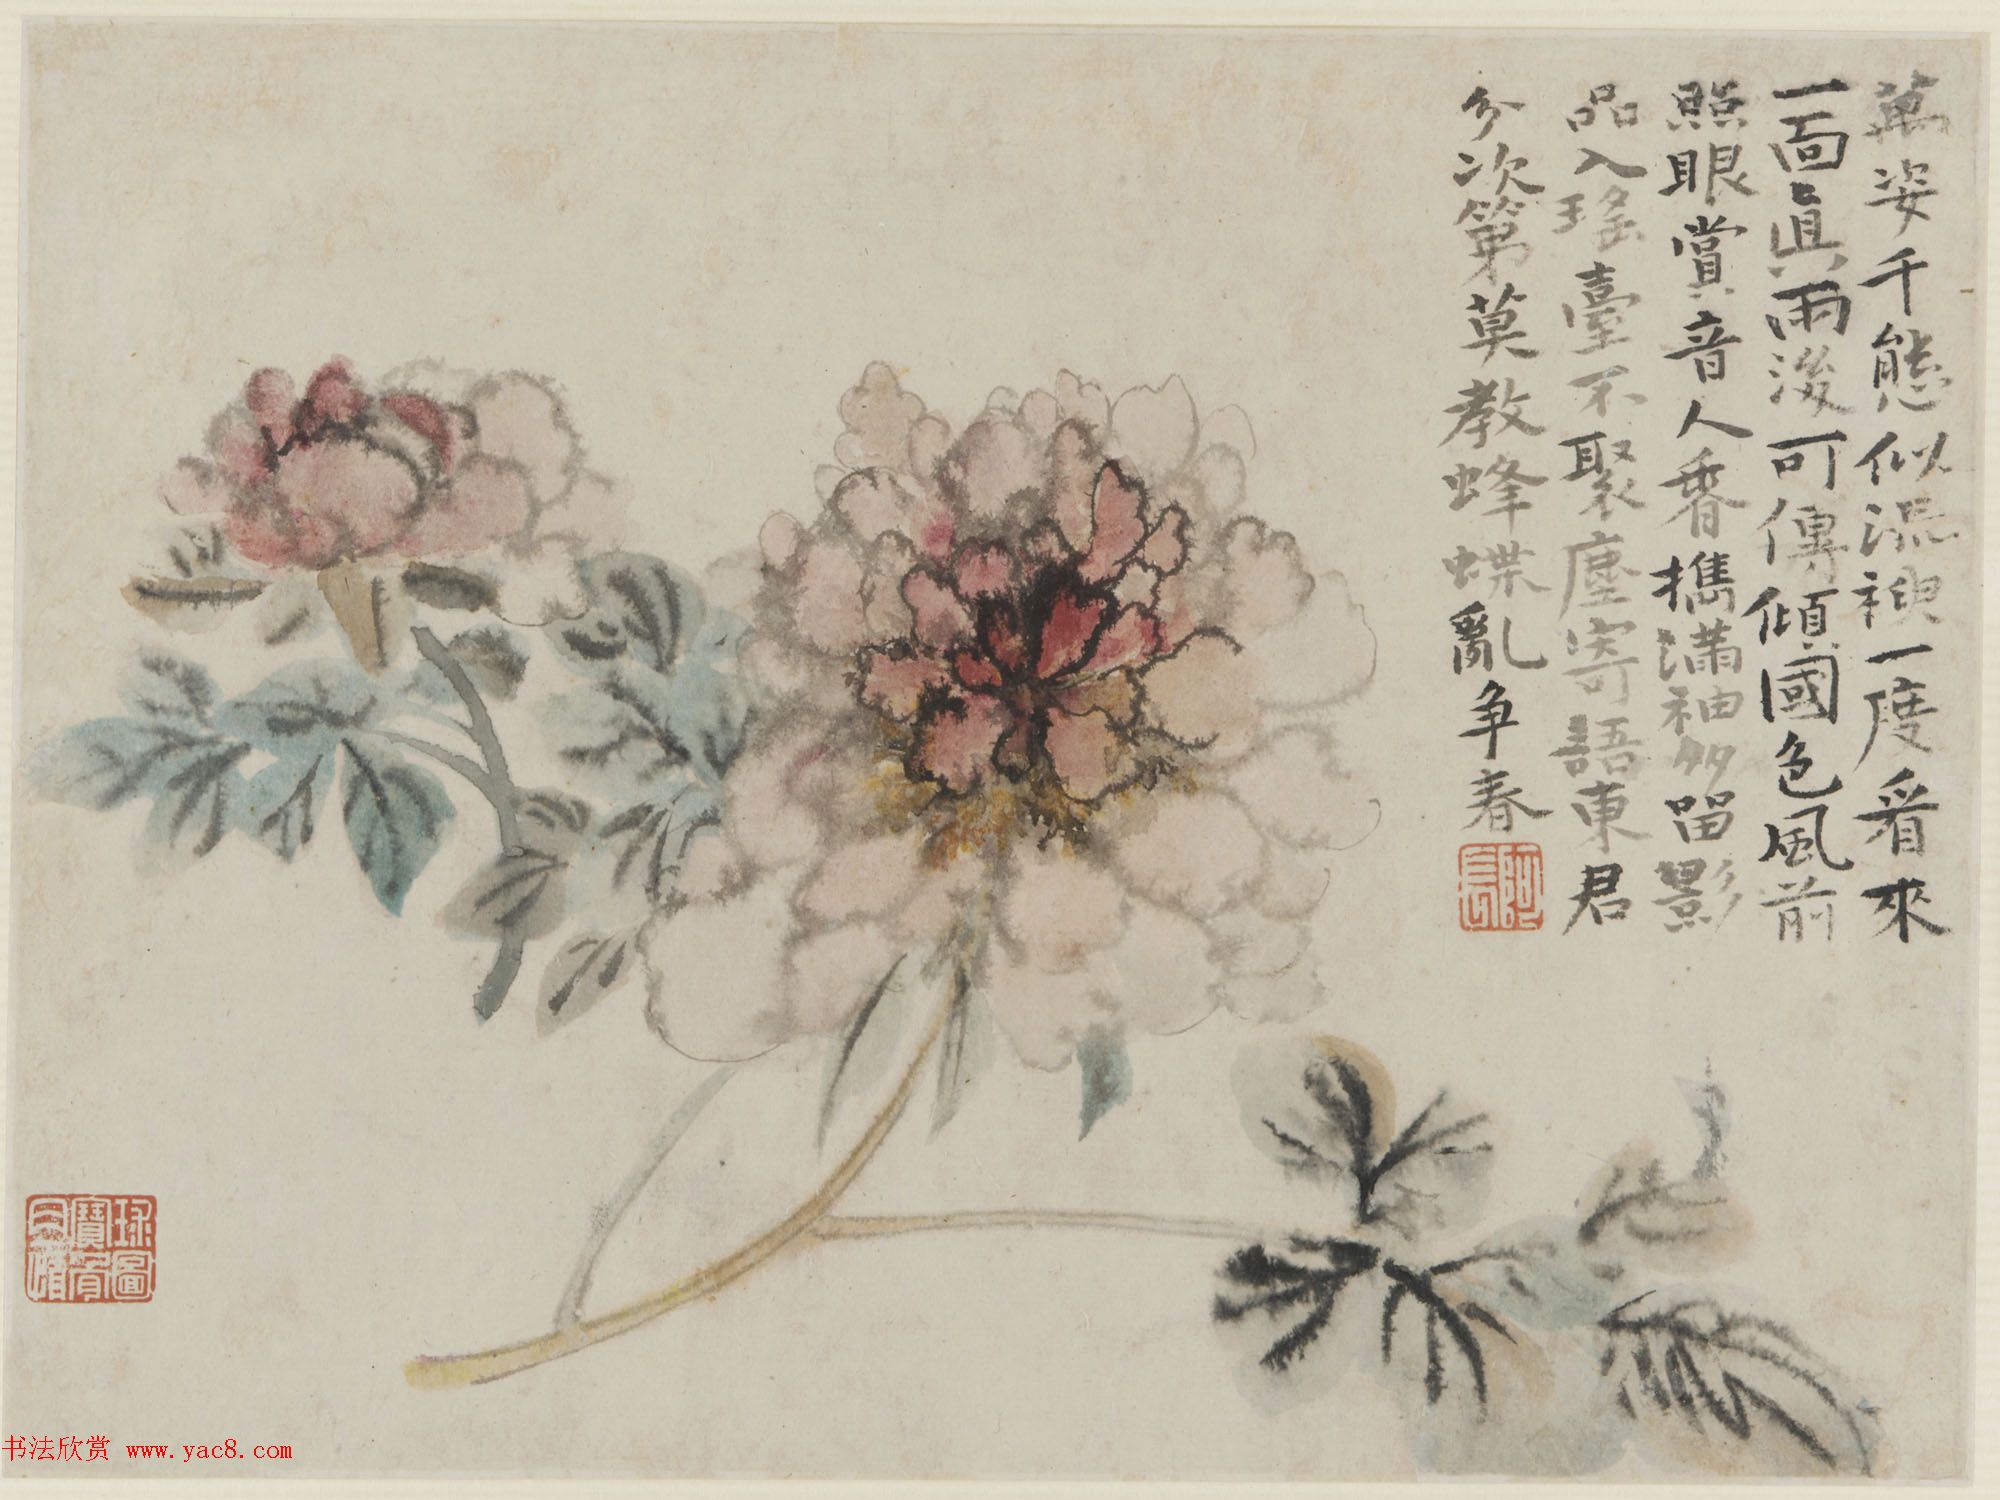 萬姿千態似混䙝一度看來
一面真雨後可傳傾國色風前
照眼賞音人香攜滿袖多留影
品入瑤臺不聚塵寄語東君
分次第莫教蜂蝶亂爭春
阿長
书法欣赏 www.yac8.com